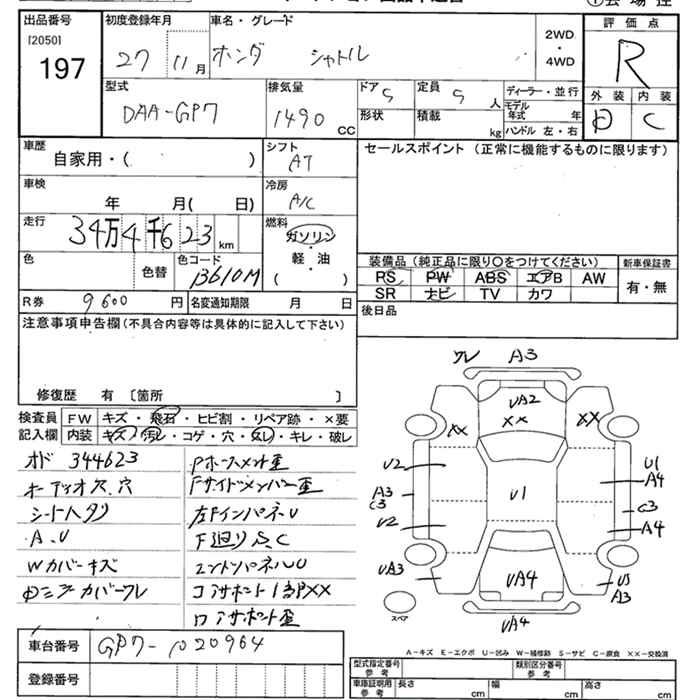 出品番号
[2050]
197
初度登録年月
27 11月
車名・グレード
ホンダ シャトル
2WD
・
4WD
評価点
R
外装 内装
D C
型式
DAA-GP7
排気量
1490 CC
ドア 5
形状
定員 5 人
積載 kg
ディーラー・並行
モデル年式 年
ハンドル 左・右
車歴
自家用・( )
シフト
AT
セールスポイント (正常に機能するものに限ります)
車検
年 月( 日)
冷房
A/C
走行
34万4千623 km
燃料
ガソリン
・
軽油
( )
色
色替
色コード
B610M
装備品(純正品に限り○をつけてください)
RS PW ABS エアB AW
SR ナビ TV カワ
新車保証書
有・無
R券 9600円
名変通知期限 月 日
後日品
注意事項申告欄(不具合内容等は具体的に記入して下さい)
修復歴 有 〔箇所 〕
検査員
記入欄
FW キズ・飛石・ヒビ割・リペア跡・×要
内装 キズ・汚レ・コゲ・穴・スレ・キレ・破レ
オド 344623
オーディオス.穴
シートヘタリ
A.U
Wカバーキズ
Fサイドメンバー歪
左Fインパネル
F廻りS.C
コアサポート1部XX
ロアサポート歪
ワレ A3
UA2
XX
XX
XX
U2
U1
U1
A4
A3
C3
C3
U2
A4
UA3
UA4
A3
UA4
スペア
A-キズ E-エクボ U-凹み W-補修跡 S-サビ C-腐食 XX-交換済
車台番号
登録番号
型式指定番号
参考
類別区分番号
参考
車庫証明用
参考
長さ cm
幅 cm
高さ cm